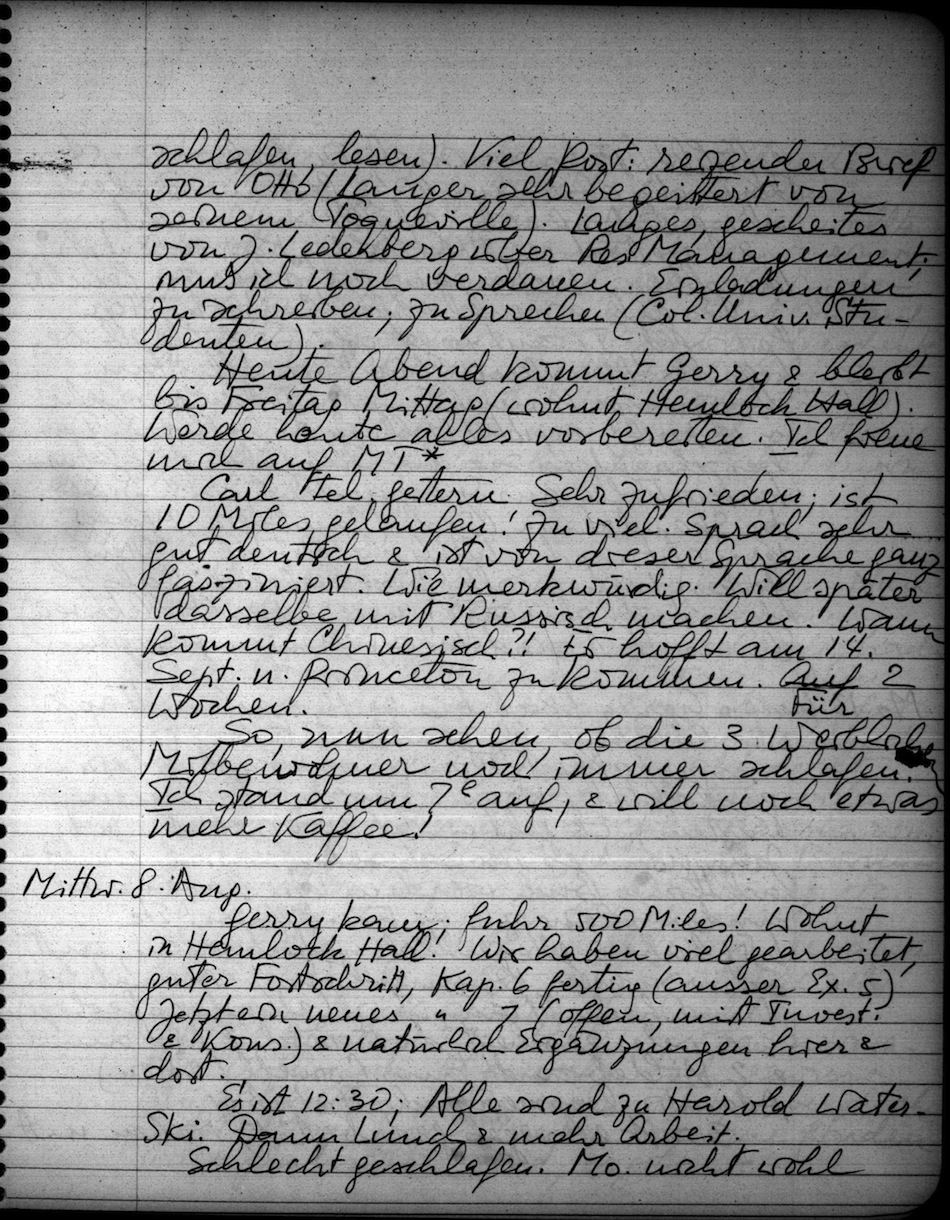 schlafen, lesen). Viel Post: reizender Brief
von Otto (Langer sehr begeistert von
seinem Toqueville). Langes, gescheites
von J. Lederberg über Res Management;
muss ich noch verdauen. Einladungen
zu schreiben; zu Sprechen (Col. Univ. Stu-
denten).
Heute Abend kommt Gerry & bleibt
bis Freitag Mittag (wohnt Hemlock Hall).
Werde heute alles vorbereiten. Ich freue
mich auf MT*
Carl tel. gestern. Sehr zufrieden; ist
10 Miles gelaufen! Zu viel. Sprach sehr
gut deutsch & ist von dieser Sprache ganz
fasziniert. Wie merkwürdig. Will später
dasselbe mit Russisch machen. Wann
kommt Chinesisch?! Er hofft am 14.
Sept. n. Princeton zu kommen. Auf 2
Für
Wochen.
So, nun sehen, ob die 3 Weiblichen
Mitbewohner noch immer schlafen.
Ich stand um 7° auf, & will noch etwas
mehr Kaffee!
Mittw. 8. Aug.
Gerry kam; fuhr 500 Miles! Wohnt
in Hemlock Hall. Wir haben viel gearbeitet,
guter Fortschritt, Kap. 6 fertig (ausser Ex. 5)
Jetzt ein neues " 7 (offen, mit Invest.
& Kons.) & natürlich Ergänzungen hier &
dort.
Es ist 12:30; Alle sind zu Harold Water-
Ski. Dann Lunch & mehr Arbeit.
Schlecht geschlafen. Mo. nicht wohl